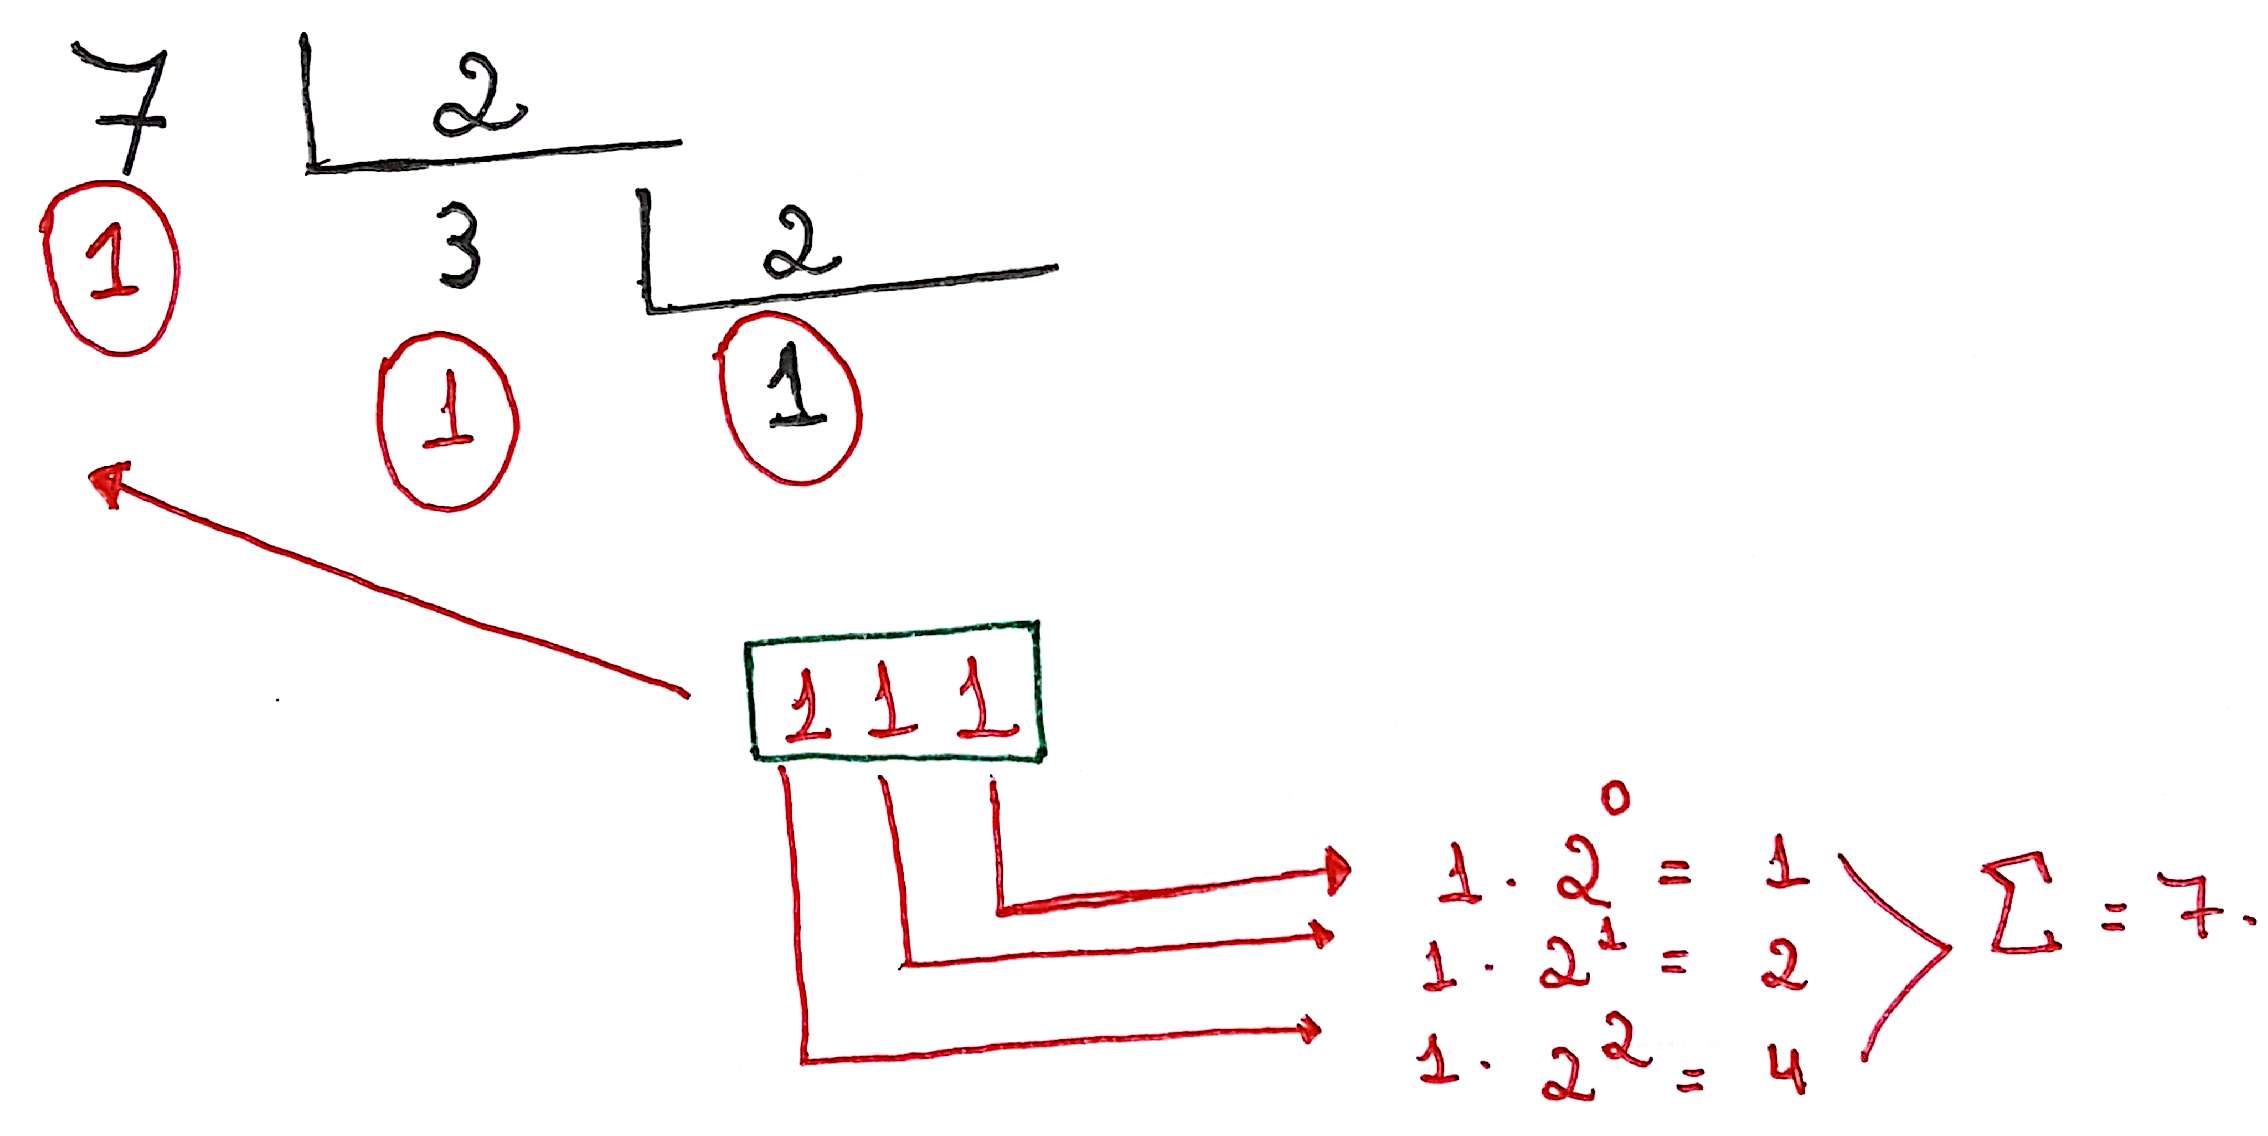 7 2
1 3 2
1 1
111
1 · 2⁰ = 1
1 · 2¹ = 2
1 · 2² = 4
Σ = 7.